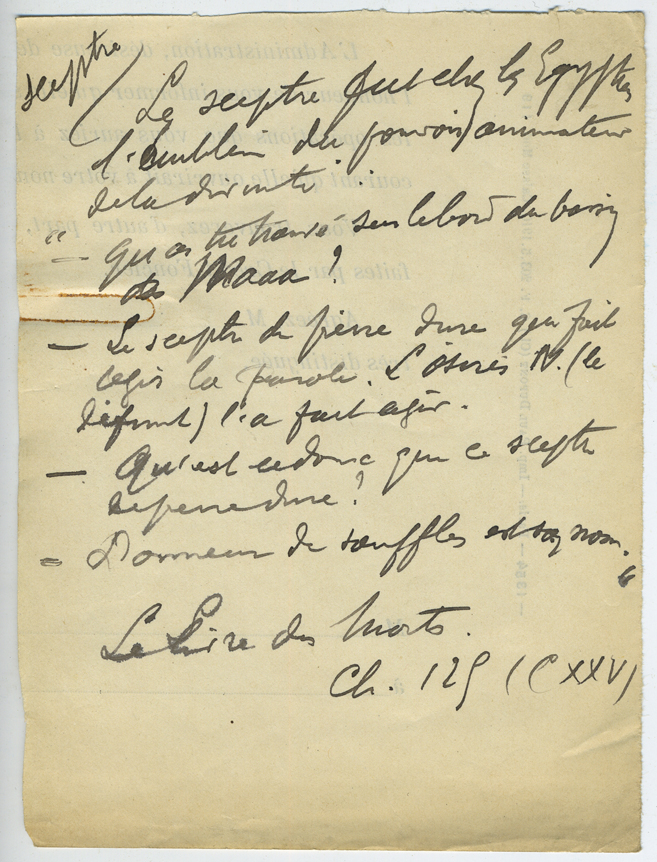 sceptre
Le sceptre fut chez les Egyptiens
l'emblème du pouvoir animateur
de la divinité :
" — qu'as tu trouvé sur le bord du bassin
de Maaa ?
— Le sceptre de pierre dure qui fait
agir la parole. L'osiris N. (le
défunt) l'a fait agir.
— Qu'est ce donc que ce sceptre
de pierre dure ?
= Donneur de souffles est son nom. "
Le Livre des Morts.
Ch. 125 (CXXV)